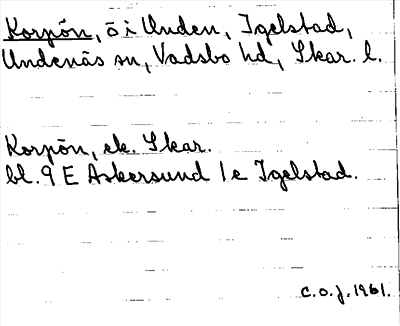 Korpön, ö i Unden, Igelstad,
Undenäs sn, Vadsbo hd, Skar. l.
Korpön, ek. Skar.
bl. 9 E Askersund 1e Igelstad.
C.O.J. 1961.